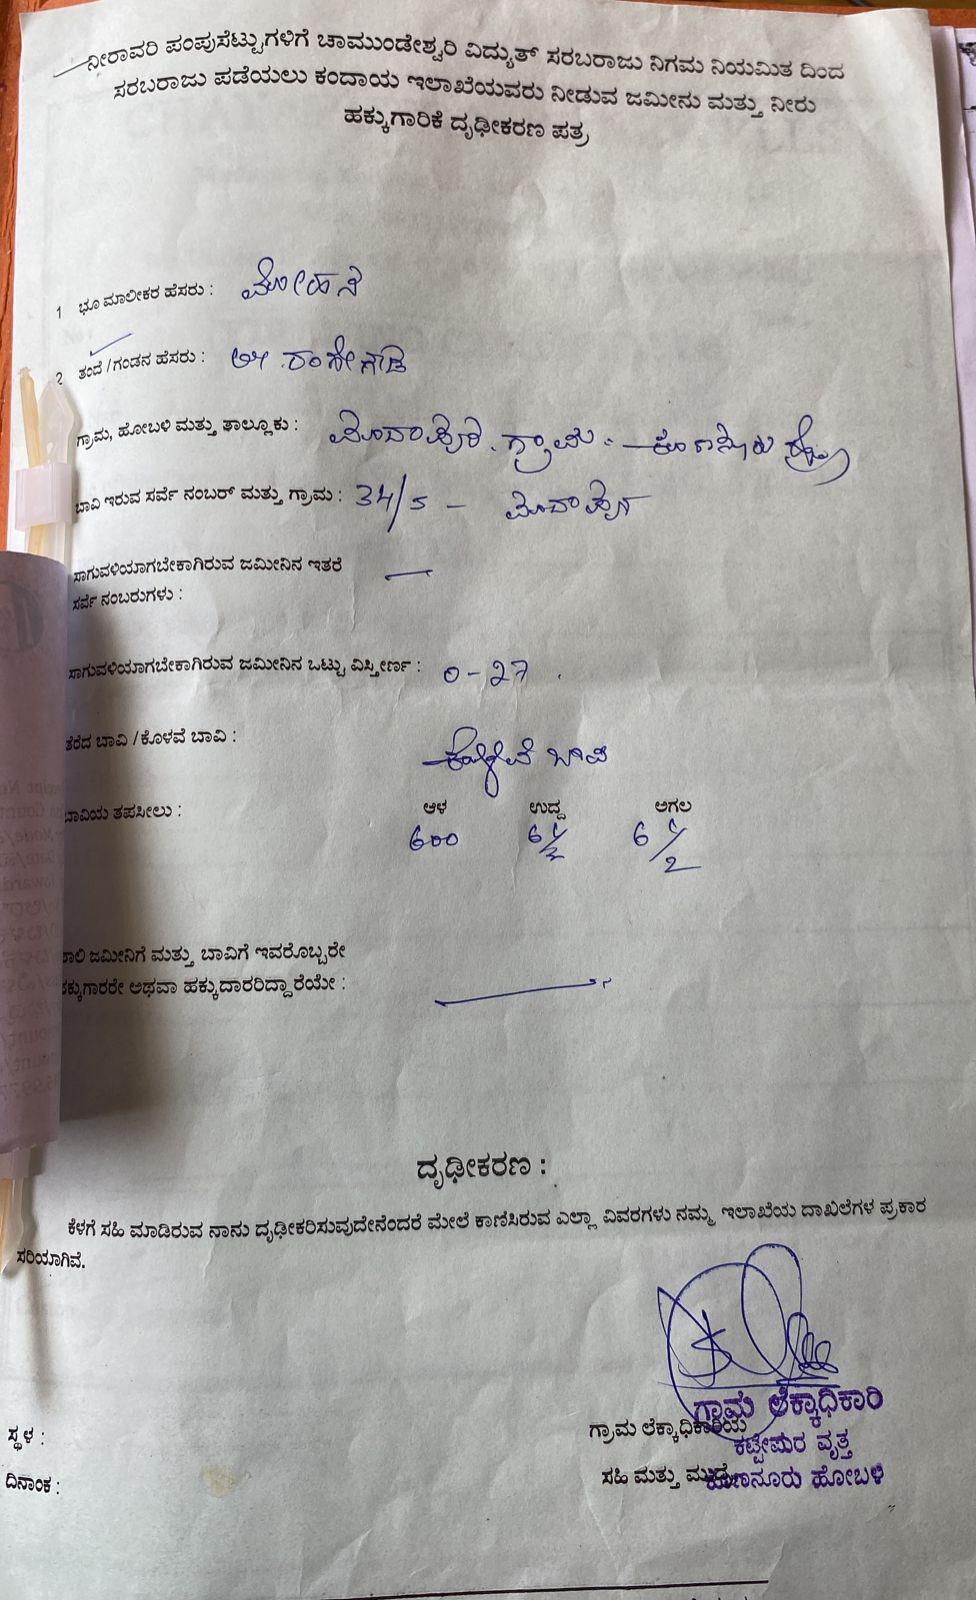 ನೀರಾವರಿ ಪಂಪುಸೆಟ್ಟುಗಳಿಗೆ ಚಾಮುಂಡೇಶ್ವರಿ ವಿದ್ಯುತ್ ಸರಬರಾಜು ನಿಗಮ ನಿಯಮಿತ ದಿಂದ
ಸರಬರಾಜು ಪಡೆಯಲು ಕಂದಾಯ ಇಲಾಖೆಯವರು ನೀಡುವ ಜಮೀನು ಮತ್ತು ನೀರು
ಹಕ್ಕುಗಾರಿಕೆ ದೃಢೀಕರಣ ಪತ್ರ
1 ಭೂ ಮಾಲೀಕರ ಹೆಸರು : ಮೋಹನ
2 ತಂದೆ / ಗಂಡನ ಹೆಸರು :
ಗ್ರಾಮ, ಹೋಬಳಿ ಮತ್ತು ತಾಲ್ಲೂಕು : ಗ್ರಾಮ
ಬಾವಿ ಇರುವ ಸರ್ವೆ ನಂಬರ್ ಮತ್ತು ಗ್ರಾಮ : 34/5 –
ಸಾಗುವಳಿಯಾಗಬೇಕಾಗಿರುವ ಜಮೀನಿನ ಇತರೆ —
ಸರ್ವೆ ನಂಬರುಗಳು :
ಸಾಗುವಳಿಯಾಗಬೇಕಾಗಿರುವ ಜಮೀನಿನ ಒಟ್ಟು ವಿಸ್ತೀರ್ಣ : 0-27
ತೆರೆದ ಬಾವಿ / ಕೊಳವೆ ಬಾವಿ : ಕೊಳವೆ ಬಾವಿ
ಬಾವಿಯ ತಪಸೀಲು : ಆಳ ಉದ್ದ ಅಗಲ
600 6 1/2 6 1/2
ಜಮೀನಿಗೆ ಮತ್ತು ಬಾವಿಗೆ ಇವರೊಬ್ಬರೇ
ಹಕ್ಕುಗಾರರೇ ಅಥವಾ ಹಕ್ಕುದಾರರಿದ್ದಾರೆಯೇ : —
ದೃಢೀಕರಣ :
ಕೆಳಗೆ ಸಹಿ ಮಾಡಿರುವ ನಾನು ದೃಢೀಕರಿಸುವುದೇನೆಂದರೆ ಮೇಲೆ ಕಾಣಿಸಿರುವ ಎಲ್ಲಾ ವಿವರಗಳು ನಮ್ಮ ಇಲಾಖೆಯ ದಾಖಲೆಗಳ ಪ್ರಕಾರ
ಸರಿಯಾಗಿವೆ.
ಗ್ರಾಮ ಲೆಕ್ಕಾಧಿಕಾರಿ
ಸ್ಥಳ : ಗ್ರಾಮ ಲೆಕ್ಕಾಧಿಕಾರಿಯ
ಕಟ್ಟೇಪುರ ವೃತ್ತ
ದಿನಾಂಕ : ಸಹಿ ಮತ್ತು ಮುದ್ರೆ
ಹೋಬಳಿ